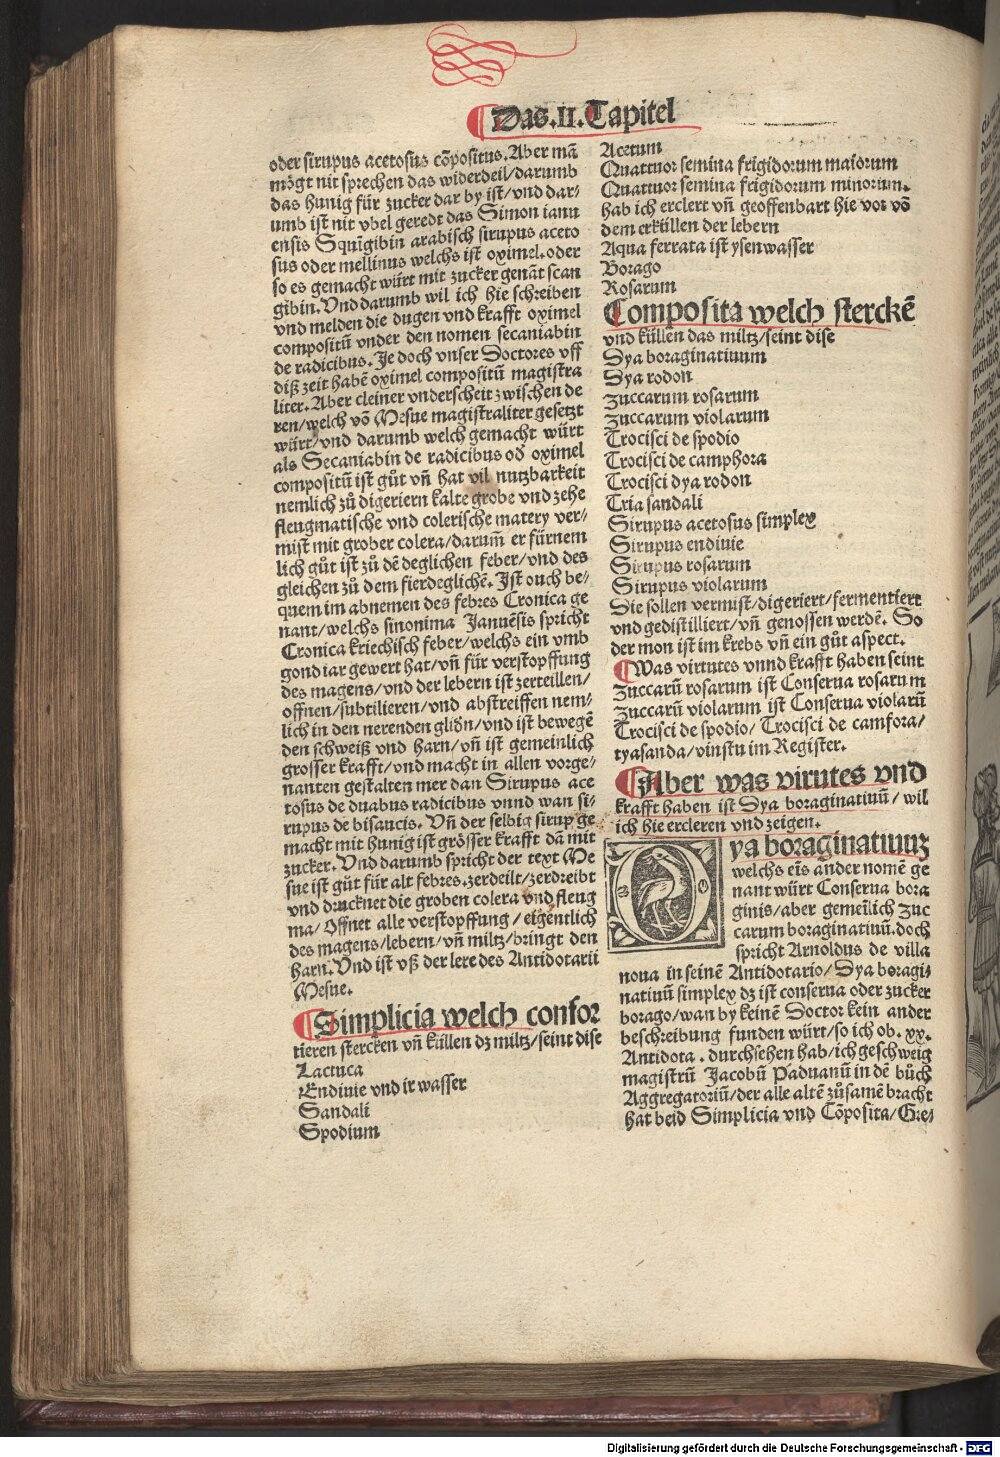 Das .II. Capitel
oder sirupus acetosus cõpositus. Aber mã
mögt nit sprechen das widerdeil/darumb
das hunig für zucker dar by ist/vnd dar⸗
umb ist nit vbel geredt das Simon ianu
ensis Squĩgibin arabisch sirupus aceto
sus oder mellinus welchs ist oximel. oder
so es gemacht würt mit zucker genãt scan
gibin. Vnd darumb wil ich hie schreiben
vnd melden die dugen vnd krafft oximel
compositũ vnder den nomen secaniabin
de radicibus. Je doch vnser Doctores vff
diß zeit habẽ oximel compositũ magistra
liter. Aber cleiner vnderscheit zwischen de
ren/welch võ Mesue magistraliter gesetzt
würt/vnd darumb welch gemacht würt
als Secaniabin de radicibus od oximel
compositũ ist gůt vñ hat vil nutzbarkeit
nemlich zů digeriern kalte grobe vnd zehe
fleugmatische vnd colerische matery ver⸗
mist mit grober colera/darum̃ er fürnem
lich gůt ist zů dẽ deglichen feber/vnd des
gleichen zů dem fierdeglichẽ. Ist ouch be⸗
quem im abnemen des febres Cronica ge
nant/welchs sinonima Januẽsis spricht
Cronica kriechisch feber/welchs ein vmb
gond iar gewert hat/vñ für verstopffung
des magens/vnd der lebern ist zerteillen/
offnen/subtilieren/vnd abstreiffen nem⸗
lich in den nerenden glidn/vnd ist bewegẽ
den schweiß vnd harn/vñ ist gemeinlich
grosser krafft/vnd macht in allen vorge⸗
nanten gestalten mer dan Sirupus ace
tosus de duabus radicibus vnnd wan si⸗
rupus de bisancis. Vñ der selbig sirup ge
macht mit hunig ist grösser krafft dã mit
zucker. Vnd darumb spricht der text Me
sue ist gůt für alt febres. zerdeilt/zerdreibt
vnd drucknet die groben colera vnd fleug
ma/Offnet alle verstopffung/eigentlich
des magens/lebern/vñ miltz/bringt den
harn. Vnd ist vß der lere des Antidotarii
Mesue.
Simplicia welch confor
tieren stercken vñ küllen dz miltz/seint dise
Lactuca
Endiuie vnd ir wasser
Sandali
Spodium
Acetum
Quattuor semina frigidorum maiorum
Quattuor semina frigidorum minorum.
hab ich erclert vñ geoffenbart hie vor võ
dem erküllen der lebern
Aqua ferrata ist ysenwasser
Borago
Rosarum
Composita welch sterckẽ
vnd küllen das miltz/seint dise
Dya boraginatiuum
Dya rodon
Zuccarum rosarum
Zuccarum violarum
Trocisci de spodio
Trocisci de camphora
Trocisci dya rodon
Tria sandali
Sirupus acetosus simplex
Sirupus endiuie
Sirupus rosarum
Sirupus violarum
Die sollen vermist/digeriert/fermentiert
vnd gedistilliert/vñ genossen werdẽ. So
der mon ist im krebs vñ ein gůt aspect.
Was virtutes vnnd krafft haben seint
Zuccarũ rosarum ist Conserua rosarum
Zuccarũ violarum ist Conserua violarũ
Trocisci de spodio/Trocisci de camfora/
tyasanda/vinstu im Register.
Aber was virutes vnd
krafft haben ist Dya boraginatiuũ/wil
ich hie ercleren vnd zeigen.
Dya boraginatiuuz
welchs eĩs ander nomẽ ge
nant würt Conserua bora
ginis/aber gemeĩlich zuc
carum boraginatinũ. doch
spricht Arnoldus de villa
noua in seinẽ Antidotario/Dya boragi⸗
natiuũ simplex dz ist conserua oder zucker
borago/wan by keinẽ Doctor kein ander
beschreibung funden würt/so ich ob .xx.
Antidota. durchsehen hab/ich geschweig
magistrũ Jacobũ Paduanũ in dẽ bůch
Aggregatoriũ/der alle altẽ zůsamẽ bracht
hat beid Simplicia vnd Cõposita/Gre⸗
Digitalisierung gefördert durch die Deutsche Forschungsgemeinschaft - DFG